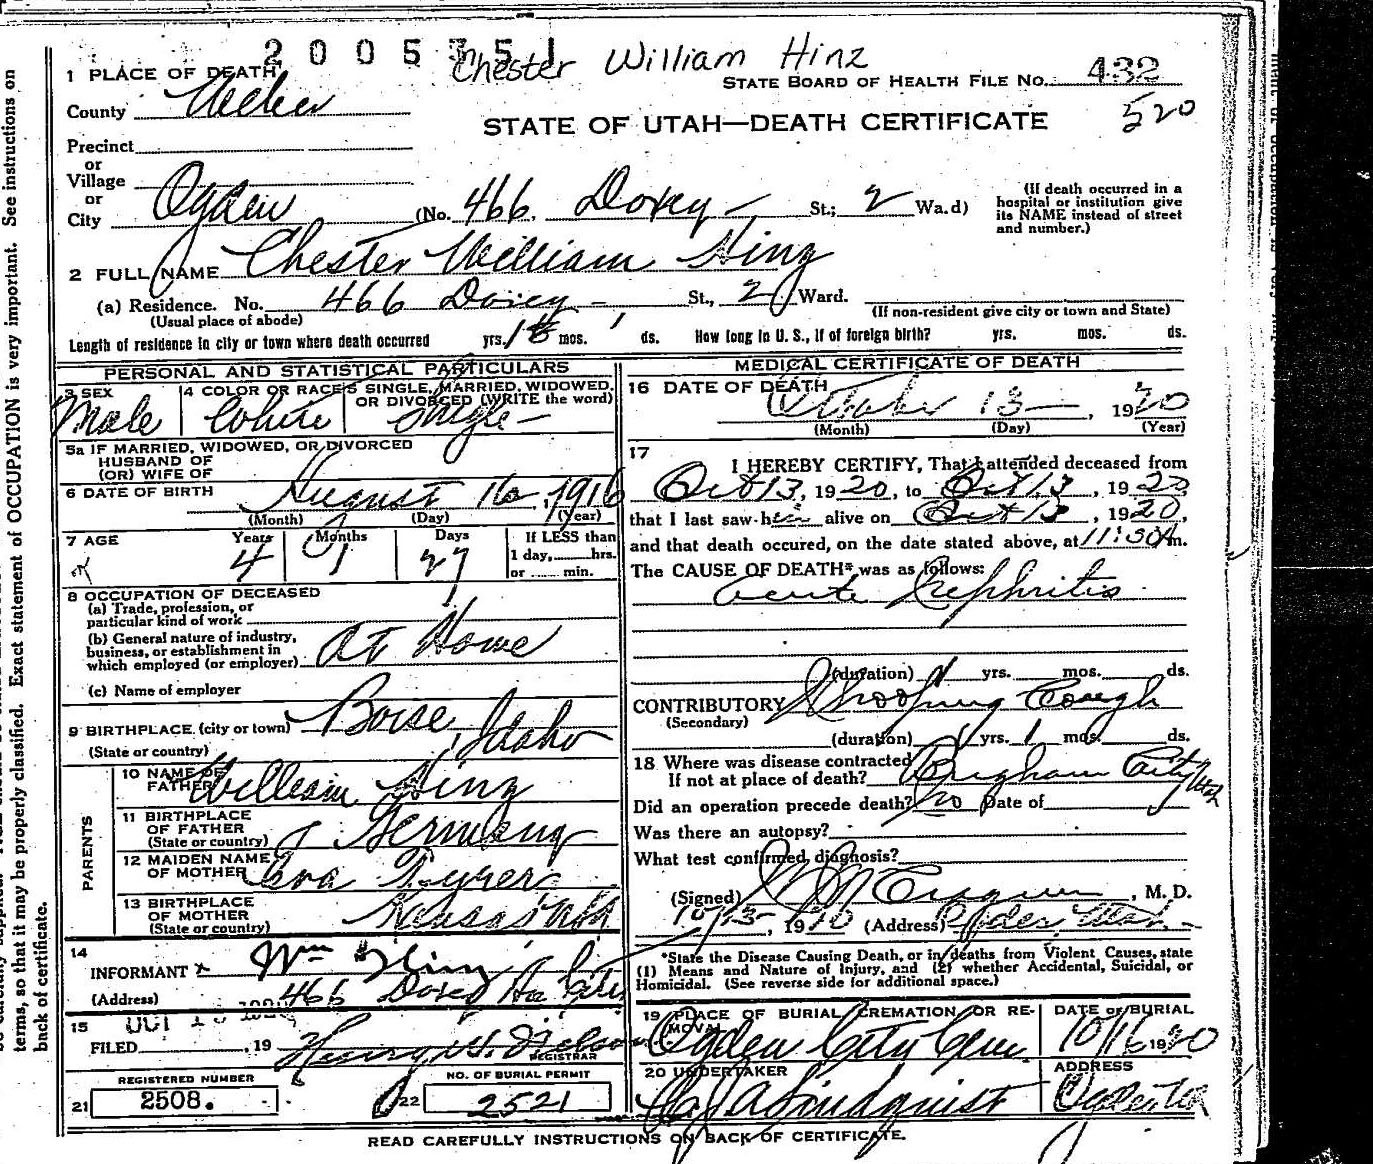 2005751
Chester William Hinz
1 PLACE OF DEATH
STATE BOARD OF HEALTH FILE No. 432
County Weber
520
STATE OF UTAH—DEATH CERTIFICATE
Precinct
or
Village
or
City Ogden (No. 466 Doxey St.; 2 Wa.d)
(If death occurred in a hospital or institution give its NAME instead of street and number.)
2 FULL NAME Chester William Hinz
(a) Residence. No. 466 Doxey St., 2 Ward.
(Usual place of abode)
(If non-resident give city or town and State)
Length of residence in city or town where death occurred yrs. mos. ds. How long in U. S., if of foreign birth? yrs. mos. ds.
PERSONAL AND STATISTICAL PARTICULARS
3 SEX
Male
4 COLOR OR RACE
White
5 SINGLE, MARRIED, WIDOWED, OR DIVORCED (WRITE the word)
Single
5a IF MARRIED, WIDOWED, OR DIVORCED
HUSBAND OF
(OR) WIFE OF
6 DATE OF BIRTH August 16, 1916
(Month) (Day) (Year)
7 AGE Years Months Days If LESS than
4 1 27 1 day, hrs.
or min.
8 OCCUPATION OF DECEASED
(a) Trade, profession, or
particular kind of work
(b) General nature of industry,
business, or establishment in
which employed (or employer) At Home
(c) Name of employer
9 BIRTHPLACE (city or town) Boise, Idaho
(State or country)
PARENTS
10 NAME OF
FATHER William Hinz
11 BIRTHPLACE
OF FATHER
(State or country) Germany
12 MAIDEN NAME
OF MOTHER Eva
13 BIRTHPLACE
OF MOTHER
(State or country) Kansas
14
INFORMANT x Wm Hinz
(Address) 466 Doxey
15
FILED , 19 Henry W. Nelson
REGISTRAR
REGISTERED NUMBER
21 2508.
NO. OF BURIAL PERMIT
22 2521
MEDICAL CERTIFICATE OF DEATH
16 DATE OF DEATH
October 13, 1920
(Month) (Day) (Year)
17
I HEREBY CERTIFY, That I attended deceased from
Oct 13, 1920, to Oct 13, 1920
that I last saw him alive on Oct 13, 1920,
and that death occured, on the date stated above, at 11:30 A m.
The CAUSE OF DEATH* was as follows:
Acute Nephritis
(duration) yrs. mos. ds.
CONTRIBUTORY Whooping Cough
(Secondary)
(duration) yrs. 1 mos. ds.
18 Where was disease contracted
If not at place of death? Brigham City Utah
Did an operation precede death? no Date of
Was there an autopsy?
What test confirmed diagnosis?
(Signed) , M. D.
10/13, 1920 (Address) Ogden, Utah
*State the Disease Causing Death, or in deaths from Violent Causes, state
(1) Means and Nature of Injury, and (2) whether Accidental, Suicidal, or
Homicidal. (See reverse side for additional space.)
19 PLACE OF BURIAL, CREMATION, OR RE-
MOVAL
Ogden City Cem.
DATE OF BURIAL
10/16 1920
20 UNDERTAKER
Lindquist
ADDRESS
Ogden, Ut
READ CAREFULLY INSTRUCTIONS ON BACK OF CERTIFICATE.
terms, so that it may be properly classified. Exact statement of OCCUPATION is very important. See instructions on
back of certificate.